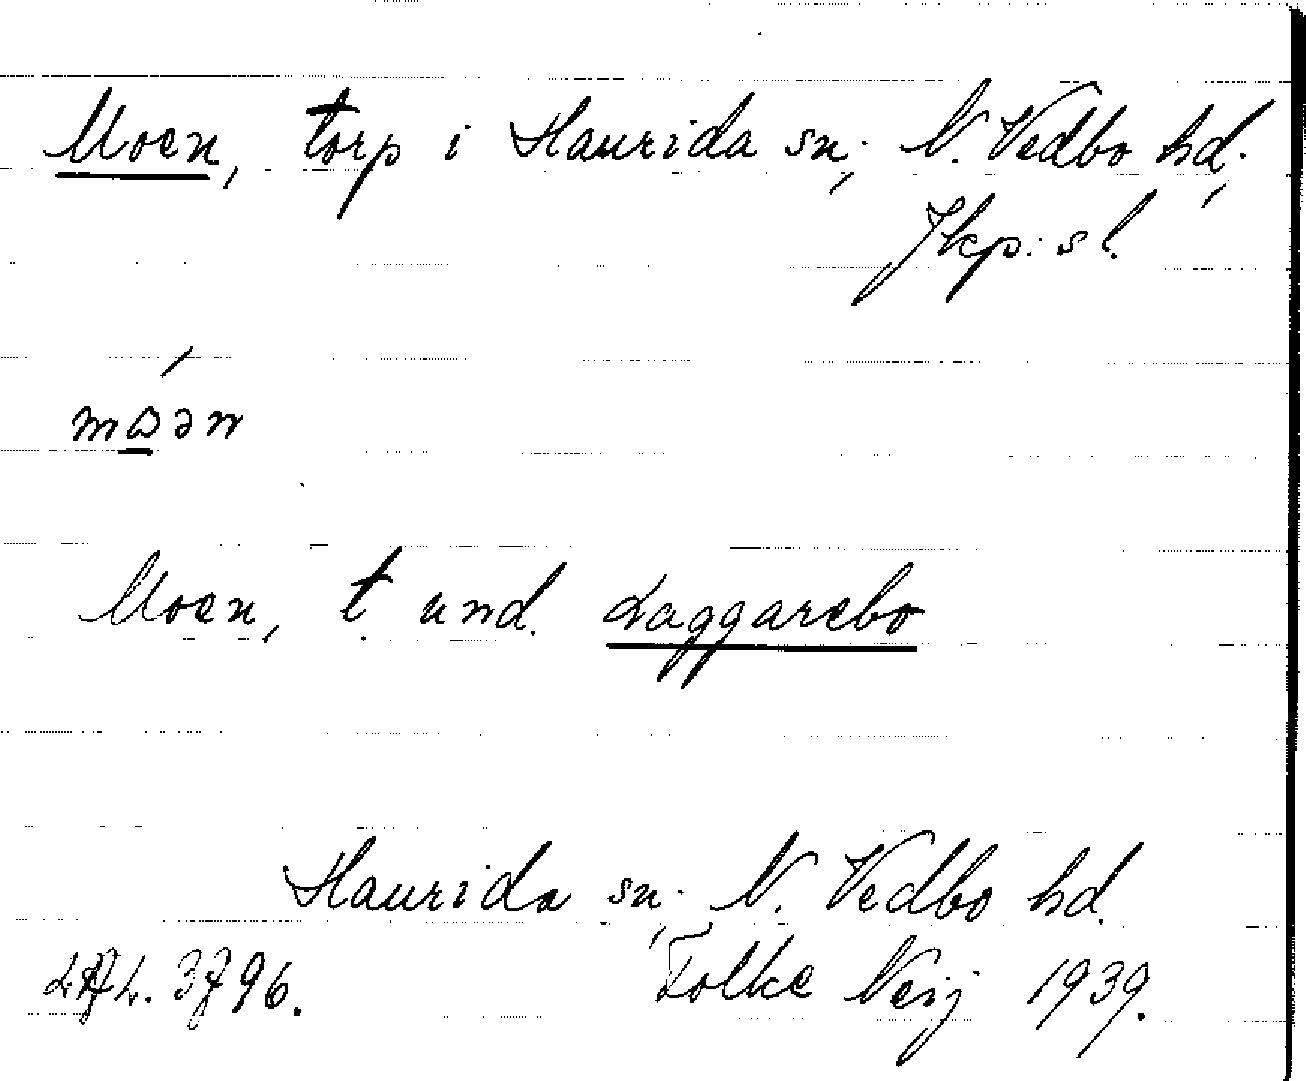 Moen, torp i Haurida sn; N. Vedbo hd;
Jkp: s l.
Moen, t. und. Laggarebo
Haurida sn; N. Vedbo hd.
Folke Neij 1939.